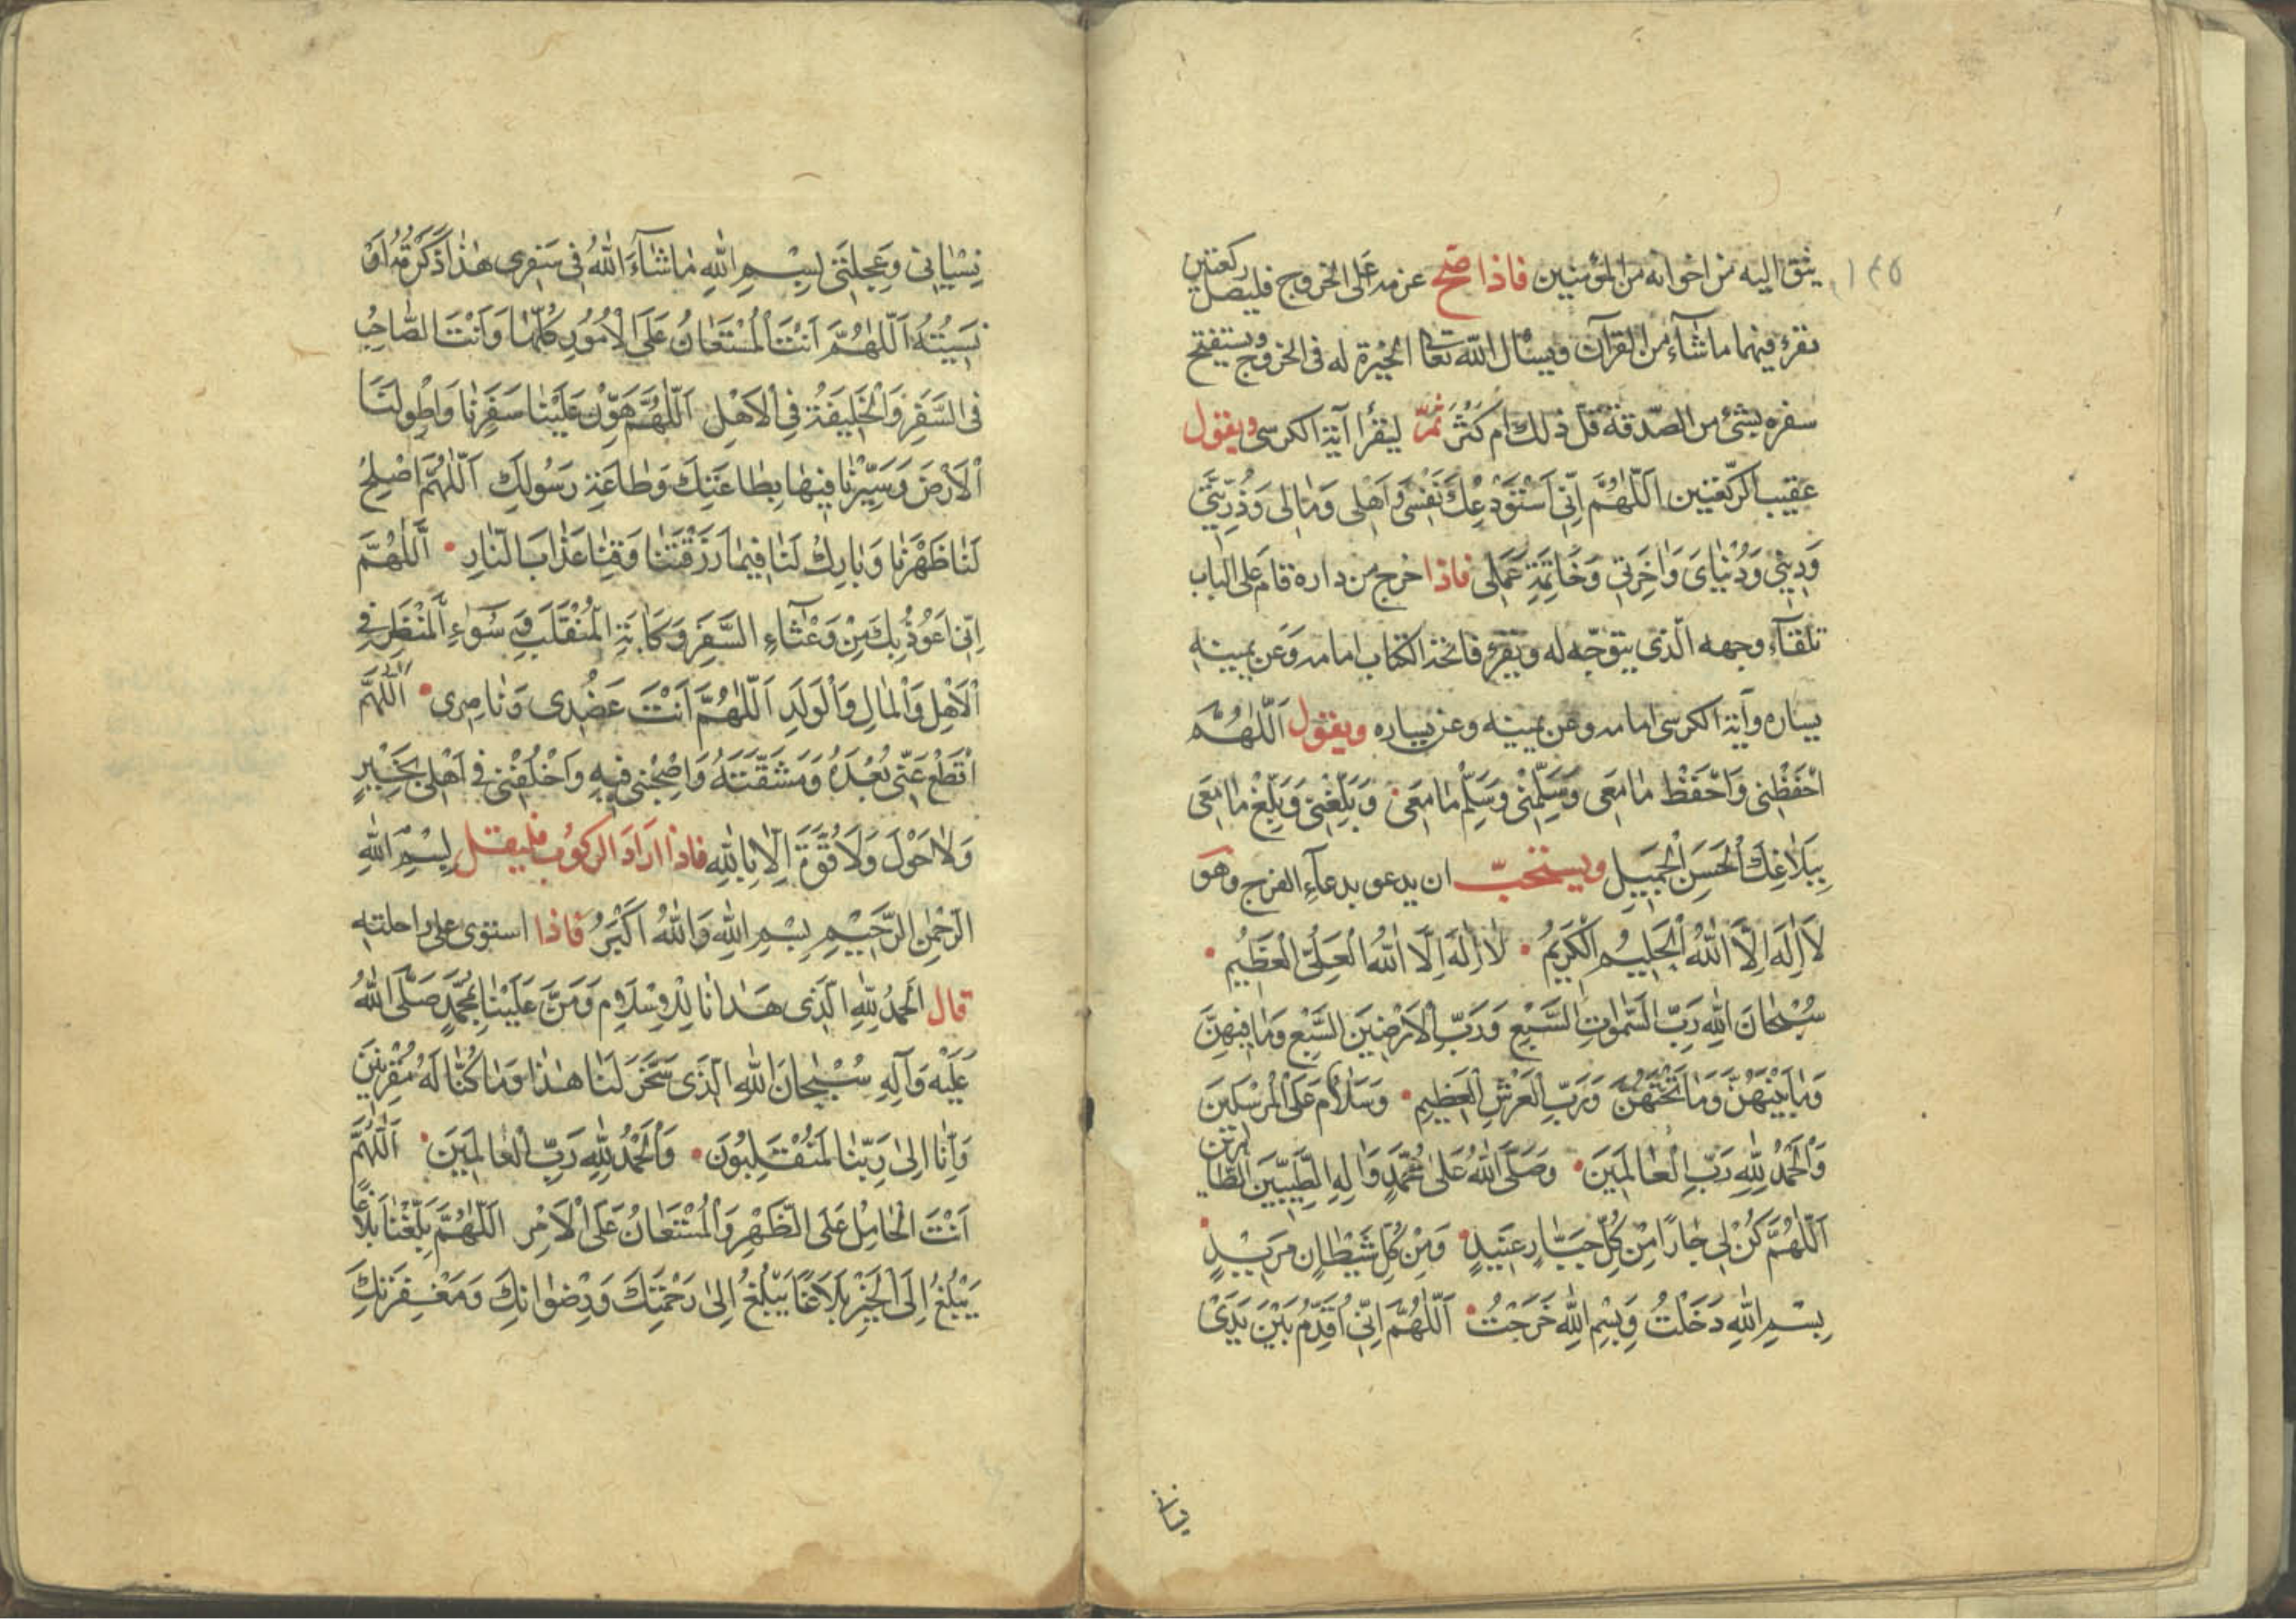 ١٣٥
يثق اليه من اخوانه من المؤمنين فاذا صحّ عزمه على الخروج فليصل ركعتين
يقرء فيهما ما شآء من القرآن ويسأل اللّه تعالى الخيرة له فى الخروج ويستفتح
سفره بشئ من الصّدقة قلّ ذلك ام كَثُرَ ثمّ ليقرأ آية الكرسى ويقول
عقيب الرّكعتين اَللّٰهُمَّ اِنّى اَسْتَوْدِعُكَ نَفْسى وَاَهْلى وَمٰالى وَذُرِّيَّتى
وَدينى وَدُنْيٰاىَ وَاٰخِرَتى وَخٰاتِمَةَ عَمَلى فاذا خرج من داره قام على الباب
تلقآء وجهه الّذى يتوجّه له ويقرء فاتحة الكتاب امامه وَعَن يمينه
يساره وآية الكرسى امامه وعن يمينه وعن يساره ويقول اَللّٰهُمَّ
احْفَظْنى وَاحْفَظْ مٰا مَعى وَسَلِّمْنى وَسَلِّمْ مٰا مَعى وَبَلِّغْنى وَبَلِّغْ مٰا مَعى
بِبَلاٰغِكَ الْحَسَنِ الْجَميلِ ويستحبّ ان يدعو بدعآء الفرج وهو
لاٰ اِلٰهَ اِلاَّ اللّٰهُ الْحَليمُ الْكَريمُ لاٰ اِلٰهَ اِلَّا اللّٰهُ الْعَلِىُّ الْعَظيمُ
سُبْحٰانَ اللّٰهِ رَبِّ السَّمٰوٰاتِ السَّبْعِ وَرَبِّ الْاَرَضينَ السَّبْعِ وَمٰا فيهِنَّ
وَمٰا بَيْنَهُنَّ وَمٰا تَحْتَهُنَّ وَرَبِّ الْعَرْشِ الْعَظيمِ وَسَلاٰمٌ عَلَى الْمُرْسَلينَ
وَالْحَمْدُ لِلّٰهِ رَبِّ الْعٰالَمينَ وَصَلَّى اللّٰهُ عَلىٰ مُحَمَّدٍ وَاٰلِهِ الطَّيِّبينَ الطّٰاهرين
اَللّٰهُمَّ كُنْ لى جٰارًا مِنْ كُلِّ جَبّٰارٍ عَنيدٍ وَمِنْ كُلِّ شَيْطٰانٍ مَريدٍ
بِسْمِ اللّٰهِ دَخَلْتُ وَبِسْمِ اللّٰهِ خَرَجْتُ اَللّٰهُمَّ اِنّى اُقَدِّمُ بَيْنَ يَدَىْ
نِسْيٰانى وَعَجَلَتى بِسْمِ اللّٰهِ مٰا شٰآءَ اللّٰهُ فى سَفَرى هٰذٰا ذَكَرْتُهُ اَوْ
نَسيتُهُ اَللّٰهُمَّ اَنْتَ الْمُسْتَعٰانُ عَلَى الْاُمُورِ كُلِّهٰا وَاَنْتَ الصّٰاحِبُ
فى السَّفَرِ وَالْخَليفَةُ فِى الْاَهْلِ اَللّٰهُمَّ هَوِّنْ عَلَيْنٰا سَفَرَنٰا وَاطْوِ لَنَا
الْاَرْضَ وَسَيِّرْنٰا فيهٰا بِطٰاعَتِكَ وَطٰاعَةِ رَسُولِكَ اَللّٰهُمَّ اَصْلِحْ
لَنٰا ظَهْرَنٰا وَبٰارِكْ لَنٰا فيمٰا رَزَقْتَنٰا وَقِنٰا عَذٰابَ النّٰارِ اَللّٰهُمَّ
اِنّى اَعُوذُ بِكَ مِنْ وَعْثٰآءِ السَّفَرِ وَكَاٰبَةِ الْمُنْقَلَبِ وَسُوٓءِ الْمَنْظَرِ فِى
الْاَهْلِ وَالْمٰالِ وَالْوَلَدِ اَللّٰهُمَّ اَنْتَ عَضُدى وَنٰاصِرى اَللّٰهُمَّ
اقْطَعْ عَنّى بُعْدَهُ وَمَشَقَّتَهُ وَاصْحَبْنى فيهِ وَاخْلُفْنى فى اَهْلى بِخَيْرٍ
وَلاٰ حَوْلَ وَلاٰ قُوَّةَ اِلّاٰ بِاللّٰهِ فاذا اَرَادَ الركوب فليقل بِسْمِ اللّٰهِ
الرَّحْمٰنِ الرَّحيمِ بِسْمِ اللّٰهِ وَاللّٰهُ اَكْبَرُ فاذا استوى على راحلته
قال اَلْحَمْدُ لِلّٰهِ الَّذى هَدٰانٰا لِلْاِسْلاٰمِ وَمَنَّ عَلَيْنٰا بِمُحَمَّدٍ صَلَّى اللّٰهُ
عَلَيْهِ وَآلِهِ سُبْحٰانَ اللّٰهِ الَّذى سَخَّرَ لَنٰا هٰذٰا وَمٰا كُنّٰا لَهُ مُقْرِنينَ
وَاِنّٰا اِلىٰ رَبِّنٰا لَمُنْقَلِبُونَ وَالْحَمْدُ لِلّٰهِ رَبِّ الْعٰالَمينَ اَللّٰهُمَّ
اَنْتَ الْحٰامِلُ عَلَى الظَّهْرِ وَالْمُسْتَعٰانُ عَلَى الْاَمْرِ اَللّٰهُمَّ بَلِّغْنٰا بَلاٰغًا
يَبْلُغُ اِلَى الْخَيْرِ بَلاٰغًا يَبْلُغُ اِلىٰ رَحْمَتِكَ وَرِضْوٰانِكَ وَمَغْفِرَتِكَ